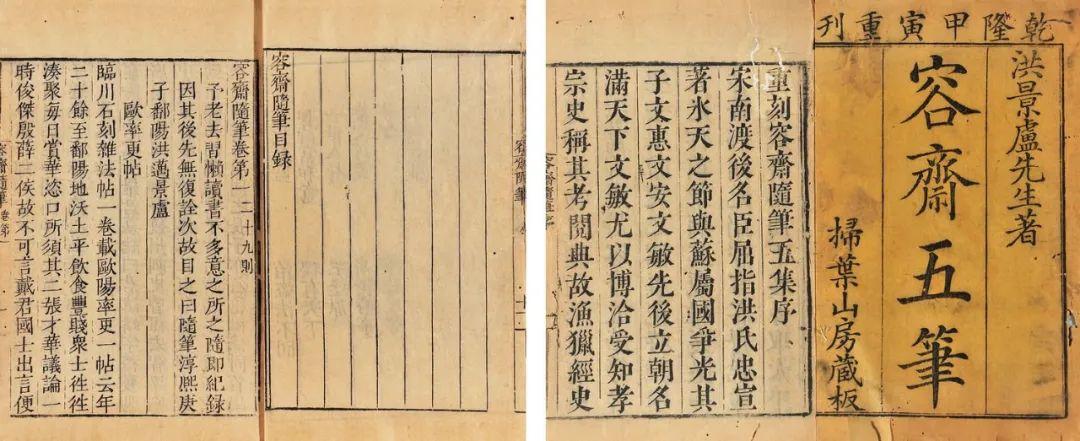 乾隆甲寅重刊
洪景盧先生著
容齋五筆
掃葉山房藏板
重刻容齋隨筆五集序
宋南渡後名臣屈指洪氏忠宣
著氷天之節與蘇屬國爭光其
子文惠文安文敏先後立朝名
滿天下文敏尤以博洽受知孝
宗史稱其考閱典故漁獵經史
容齋隨筆
容齋隨筆目録
容齋隨筆卷第一 二十九則
予老去習懶讀書不多意之所之隨即紀録
因其後先無復詮次故目之曰隨筆淳熙庚
子鄱陽洪邁景盧
歐率更帖
臨川石刻雜法帖一卷載歐陽率更一帖云年
二十餘至鄱陽地沃土平飲食豐賤衆士往往
湊聚每日賞華恣口所須其二張才華議論一
時俊傑殷薛二侯故不可言戴君國士出言便
容齋隨筆